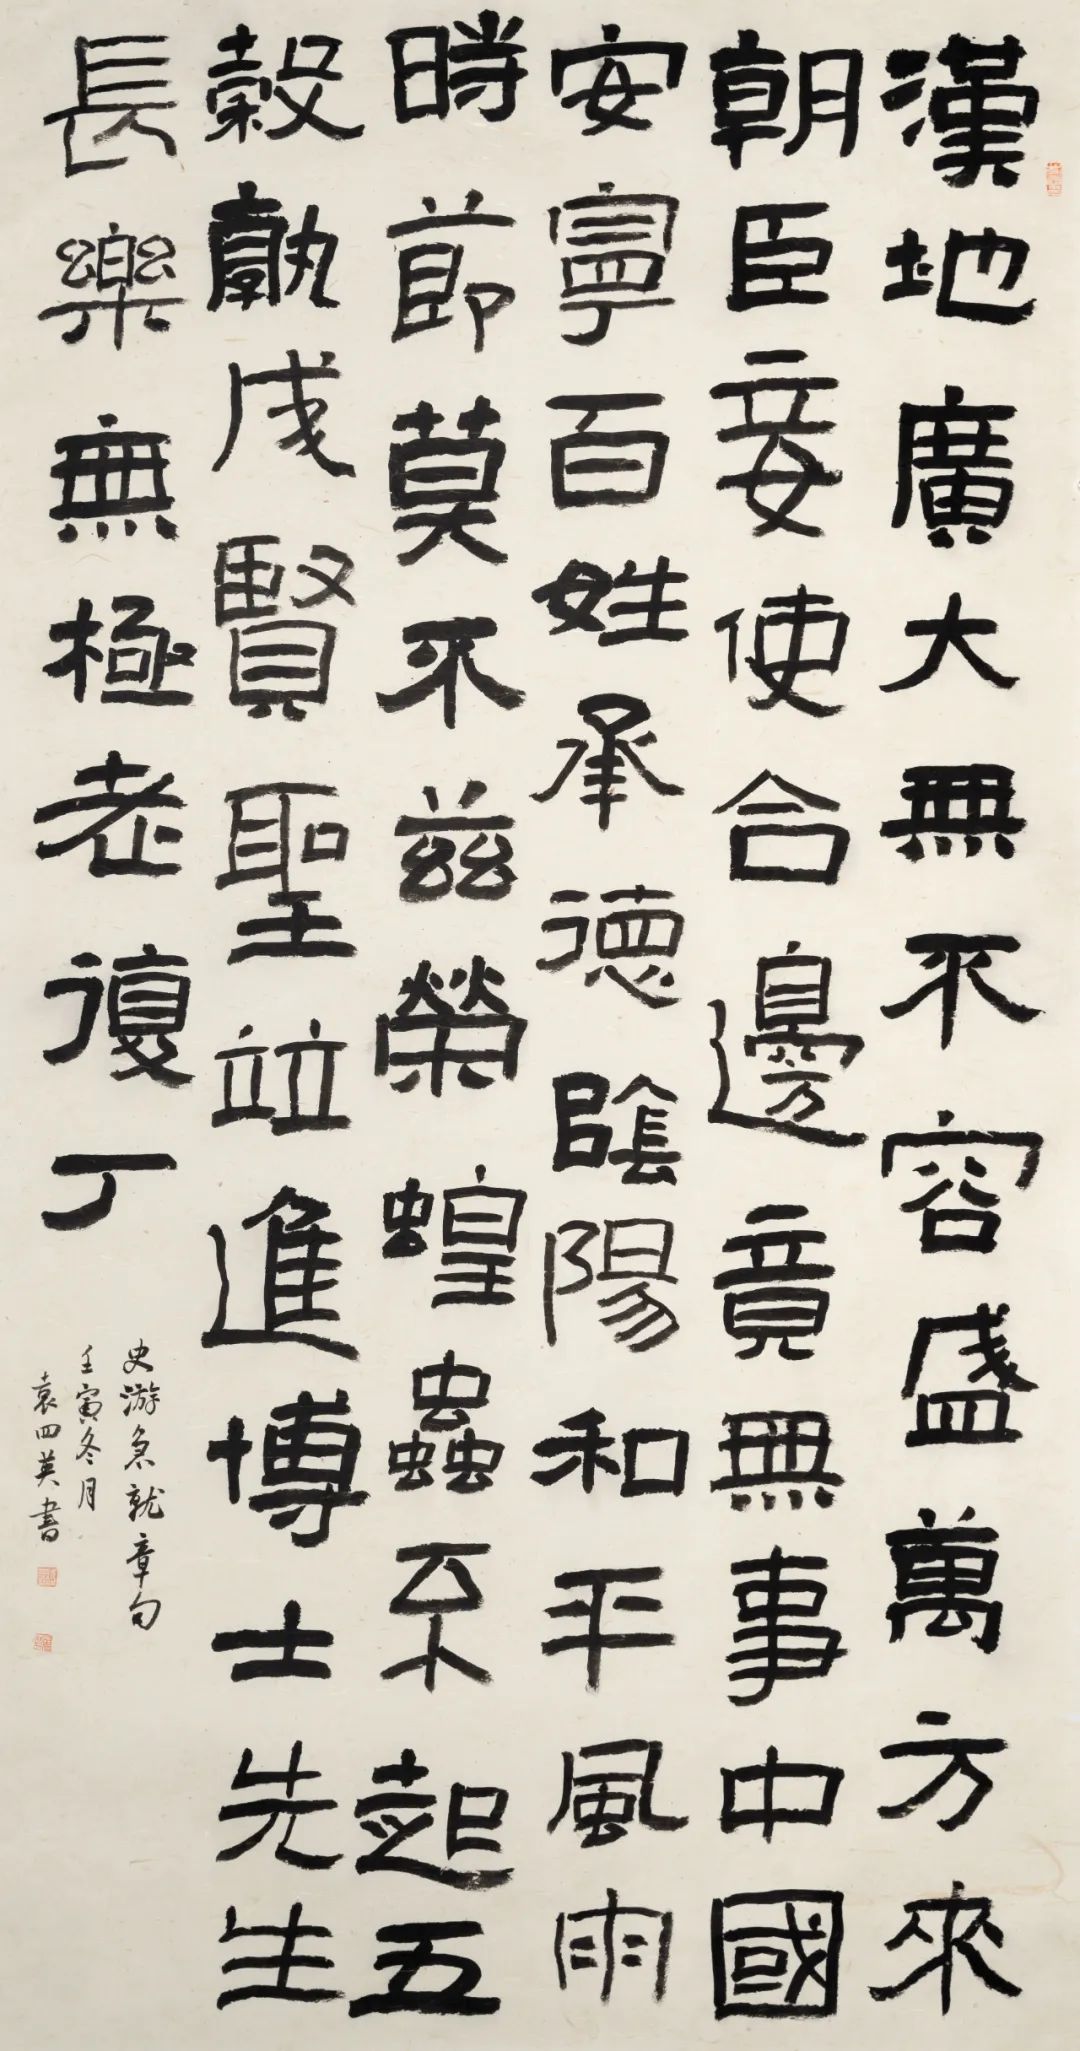 漢地廣大無不容盛萬方來
朝臣妾使合邊竟無事中國
安寧百姓承德陰陽和平風雨
時節莫不茲榮蝗蟲不起五
穀孰成賢聖並進博士先生
長樂無極老復丁
史游急就章句
壬寅冬月
袁四英書